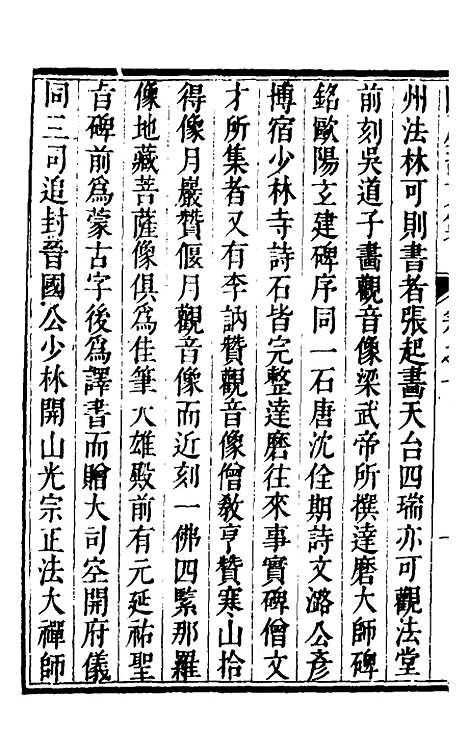 州法林可則書者張起畵天台四瑞亦可觀法堂
前刻吳道子畵觀音像梁武帝所撰達磨大師碑
銘歐陽玄建碑序同一石唐沈佺期詩文潞公彥
博宿少林寺詩石皆完整達磨往來事實碑僧文
才所集者又有李訥贊觀音像僧敎亨贊寒山拾
得像月巖贊偃月觀音像而近刻一佛四緊那羅
像地藏菩薩像俱爲佳筆大雄殿前有元延祐聖
旨碑前爲蒙古字後爲譯書而贈大司空開府儀
同三司追封晉國公少林開山光宗正法大禪師